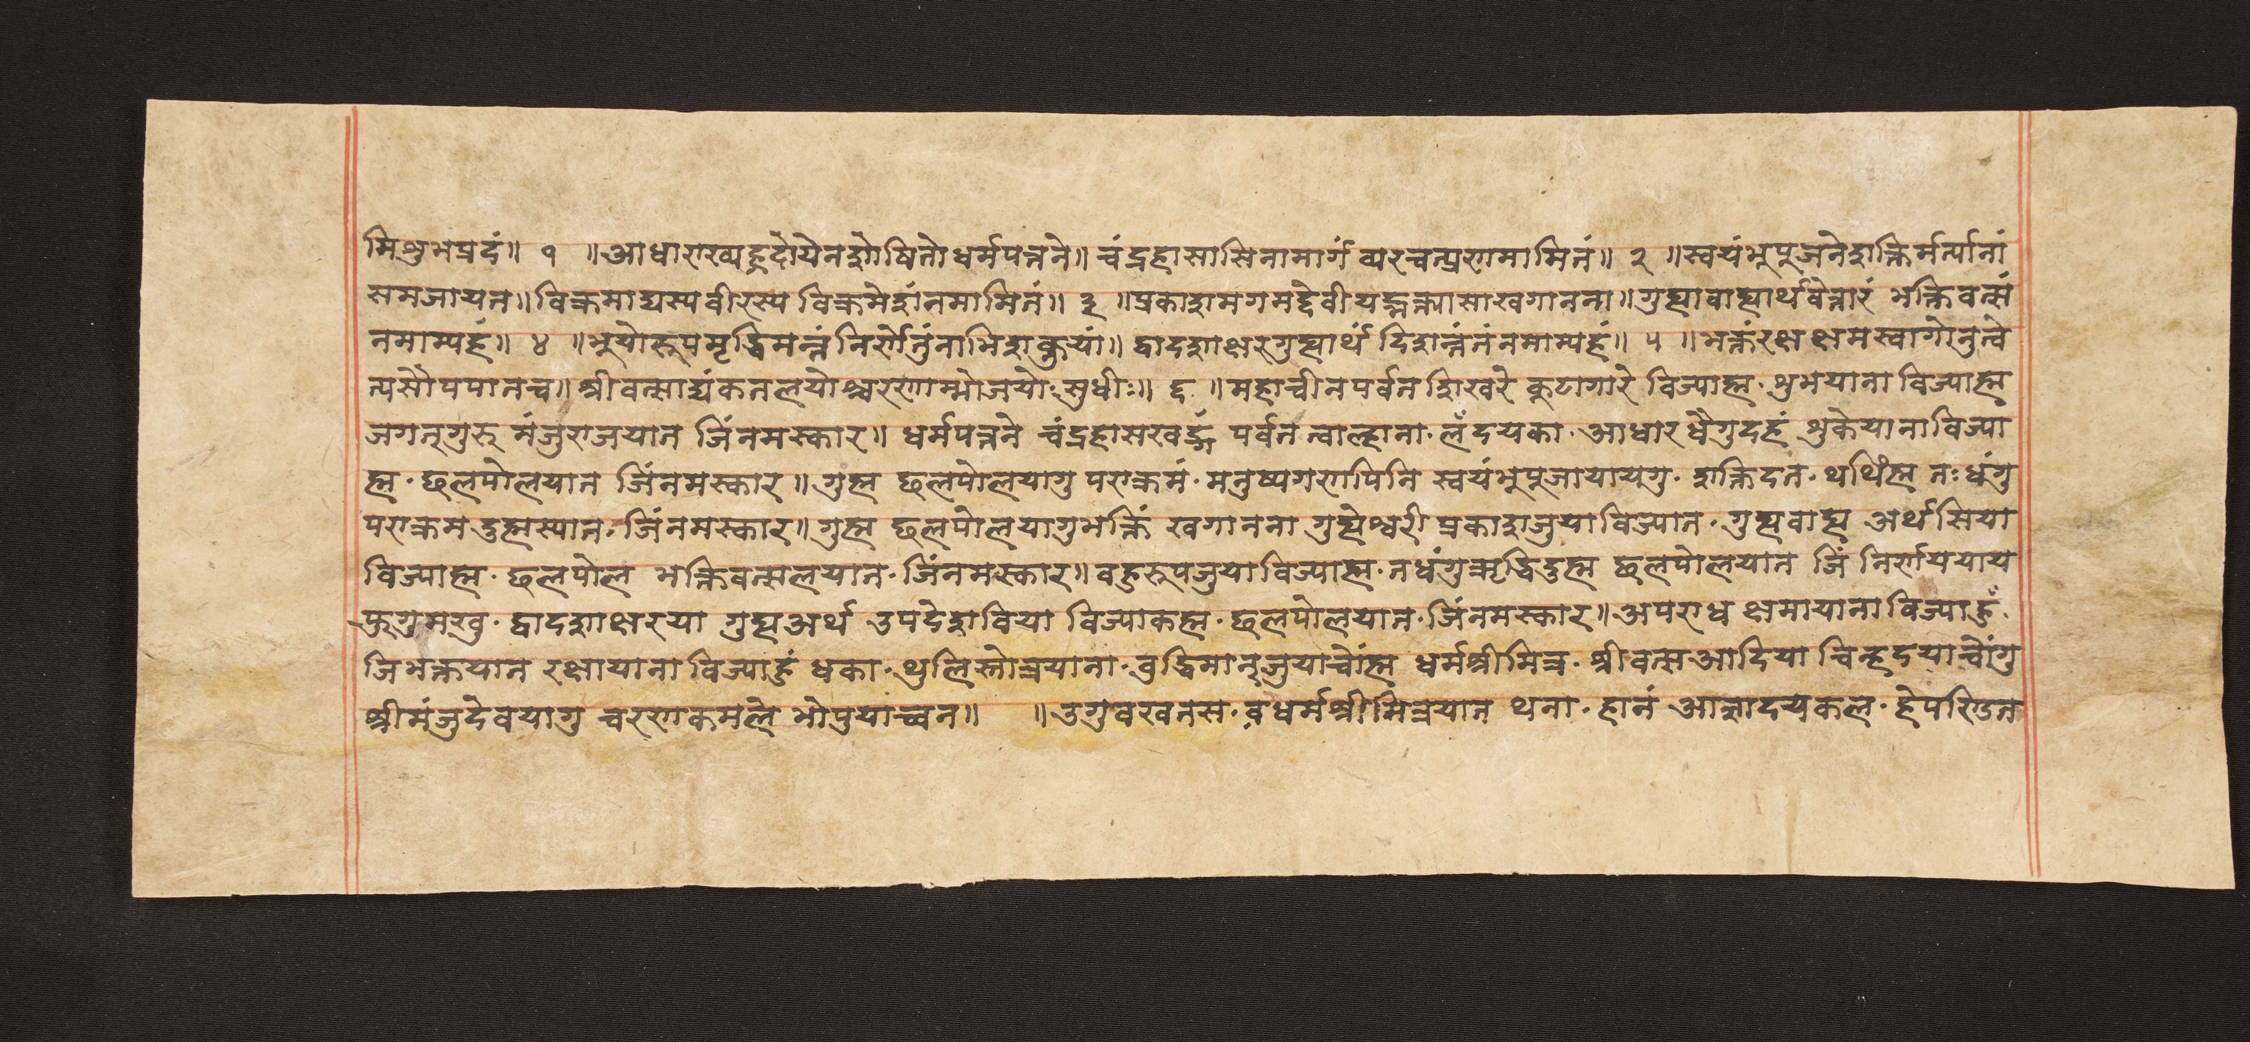 मिशुभप्रदं॥ १ ॥आधाराख्यह्रदोयेनशोषितोधर्मपत्तने॥ चंद्रहासासिनामार्गं व्यरचत्प्रणमामितं॥ २ ॥स्वयंभुपुजनेशक्तिर्मर्त्यानां
समजायत॥विक्रमाद्यस्यवीरस्य विक्रमेशंनमामितं॥ ३ ॥प्रकाशमगमद्देवीयद्भक्त्यासाखगानना॥गुह्यावाह्यार्थवेत्तारं भक्तिवत्सं
नमाम्यहं॥ ४ ॥भुयोरूपमृद्धिमन्तं निर्णेतुंनाभिशक्नुयां॥ द्वादशाक्षरगुह्यार्थं दिशन्तंतंनमाम्यहं॥ ५ ॥भक्तंरक्षक्षमस्वागोनुत्वे
त्यसौपपातच॥श्रीवत्साद्यंकतलयोश्चरणाम्भोजयोःसुधीः॥ ६ ॥महाचीनपर्वतशिखरे कुटागारे विज्याह्म॰शुभयाना विज्याह्म
जगत्गुरु मंजुराजयात जिंनमस्कार॥ धर्मपत्तने चंद्रहासखड्गं पर्वत त्वाल्हाना॰लँदयका॰आधारधैगुदहं शुकेयानाविज्या
ह्म॰छलपोलयात जिंनमस्कार॥गुह्म छलपोलयागु पराक्रमं॰मनुष्यगणपिनि स्वयंभुपुजायायगु॰शक्तिदत॰थथिंह्म तःधंगु
पराक्रमदुह्मस्यात॰जिंनमस्कार॥गुह्म छलपोलयागुभक्तिं खगानना गुह्येश्वरी प्रकाशजुयाविज्यात॰गुह्यवाह्य अर्थसिया
विज्याह्म॰छलपोल भक्तिवत्सलयात॰जिंनमस्कार॥वहुरुपजुयाविज्याह्म॰तधंगुऋद्धिदुह्म छलपोलयात जिं निर्णययाय
फुगुमखु॰द्वादशाक्षरया गुह्यअर्थ उपदेशविया विज्याकह्म॰छलपोलयात॰जिंनमस्कार॥अपराध क्षमायानाविज्याहुँ॰
जिभक्तयात रक्षायानाविज्याहुं धका॰थुलिस्तोत्रयाना॰वुद्धिमान्जुयाचोंह्म धर्मश्रीमित्र॰श्रीवत्सआदिया चिन्हदयाचोंगु
श्रीमंजुदेवयागु चरणकमले भोपुयाच्वन॥ ॥उगुवखतस॰व्रधर्मश्रीमित्रयात थना॰हानं आज्ञादयकल॰हेपण्डित